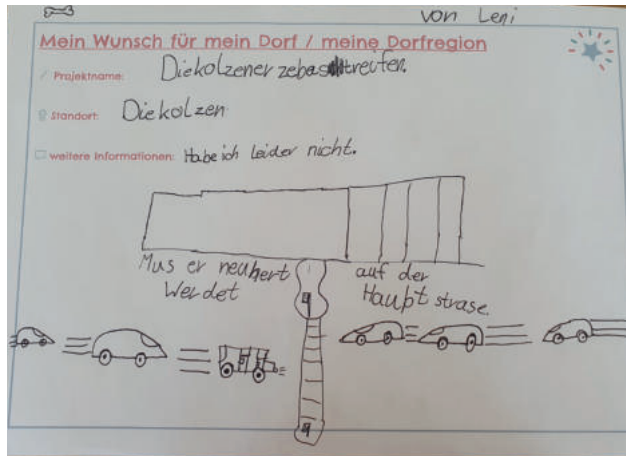 von Leni
Mein Wunsch für mein Dorf / meine Dorfregion
Projektname: Diekolzener zebastreifen.
Standort: Diekolzen
weitere Informationen: Habe ich leider nicht.
Mus er neuhert auf der
Werdet Hauptstrase.